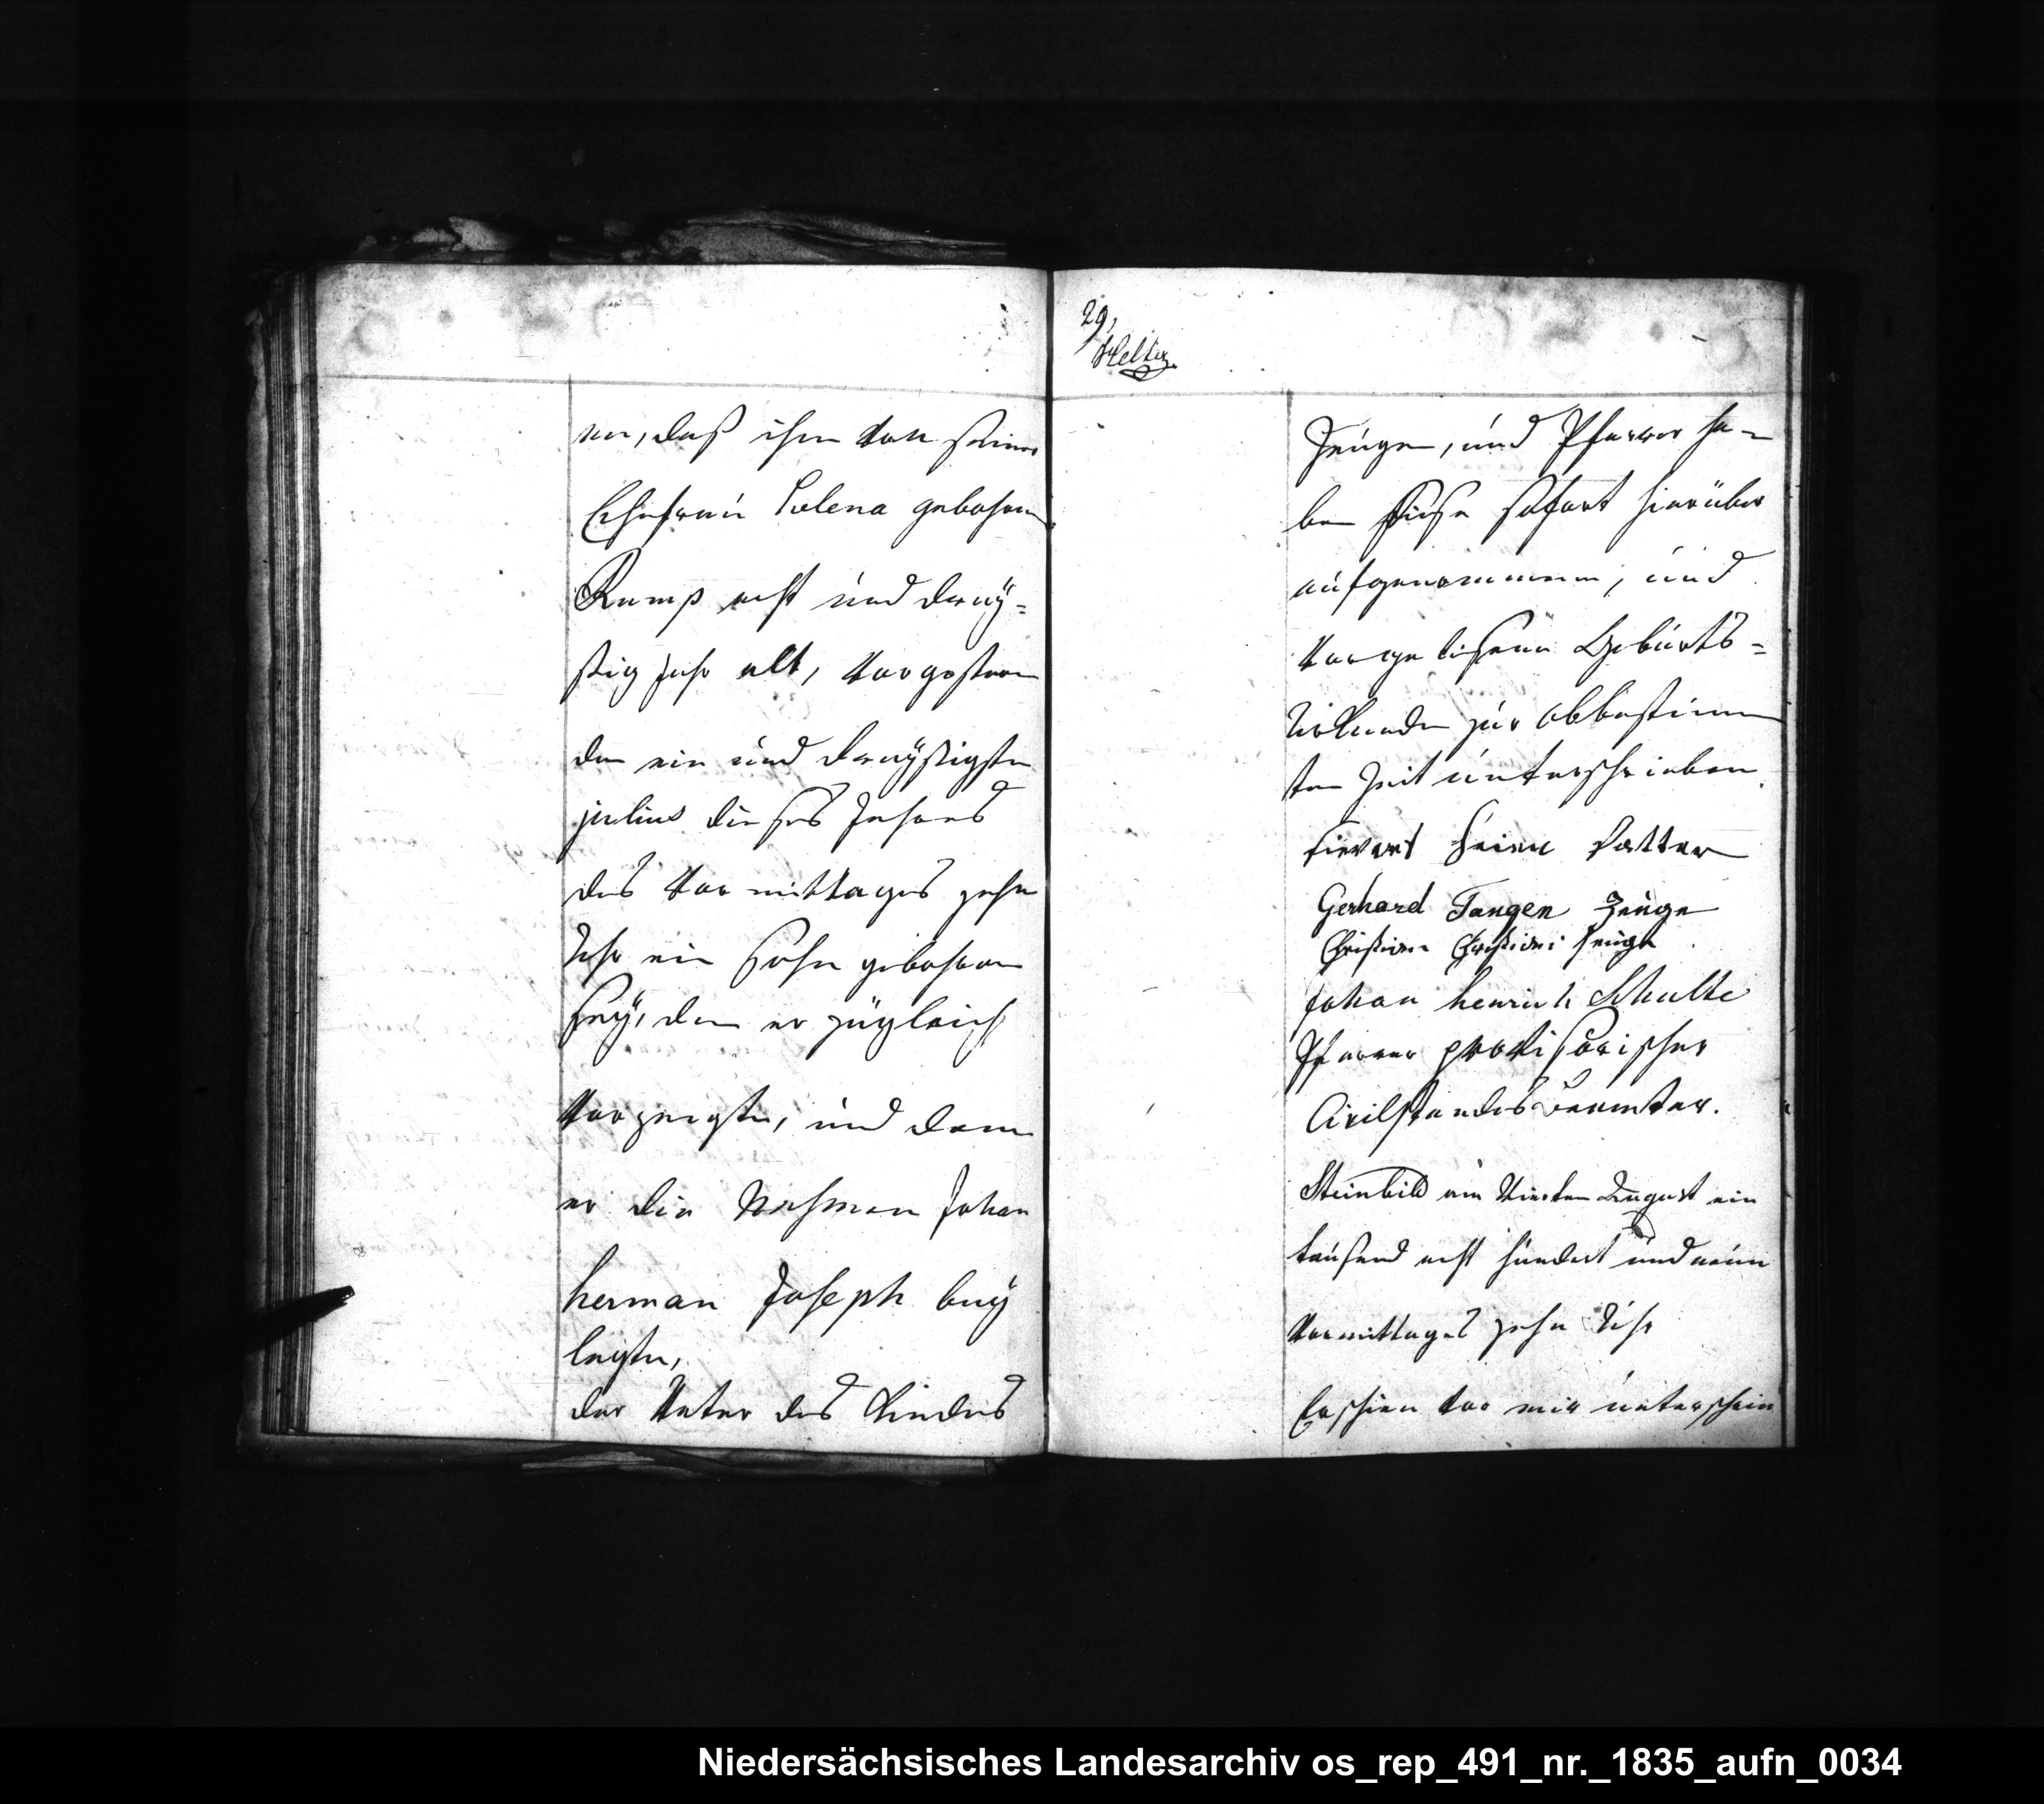 nen, daß ihm von seiner
Ehefrau Helena gebohrne
Rump acht und dreÿ=
ßig Jahr alt, vorgestern
den ein und dreÿßigsten
julius dieses Jahres
des vor mittages zehn
Uhr ein Sohn gebohren
seÿ, den er zugleich
vorzeigte, und dem
er die Nahmen Johan
herman Joseph beÿ
legte,
der Vater des Kindes
29,
Zeugen, und Pfarrer ha=
ben diese sofort hierüber
aufgenommene, und
vorgelesene Geburts=
Urkunde zur obbestimm
ten Zeit unterschrieben.
sievert Vatter
Gerhard Tangen Zeuge
Christian Zeuge
Johan henrich Schulte
Pfarrer provisorischer
Civilstandes Beamter.
Steinbild am vierten August ein
tausend acht hundert und neun
Vormittages zehn Uhr
Erschien vor mir unterschrie
Niedersächsisches Landesarchiv os_rep_491_nr._1835_aufn_0034